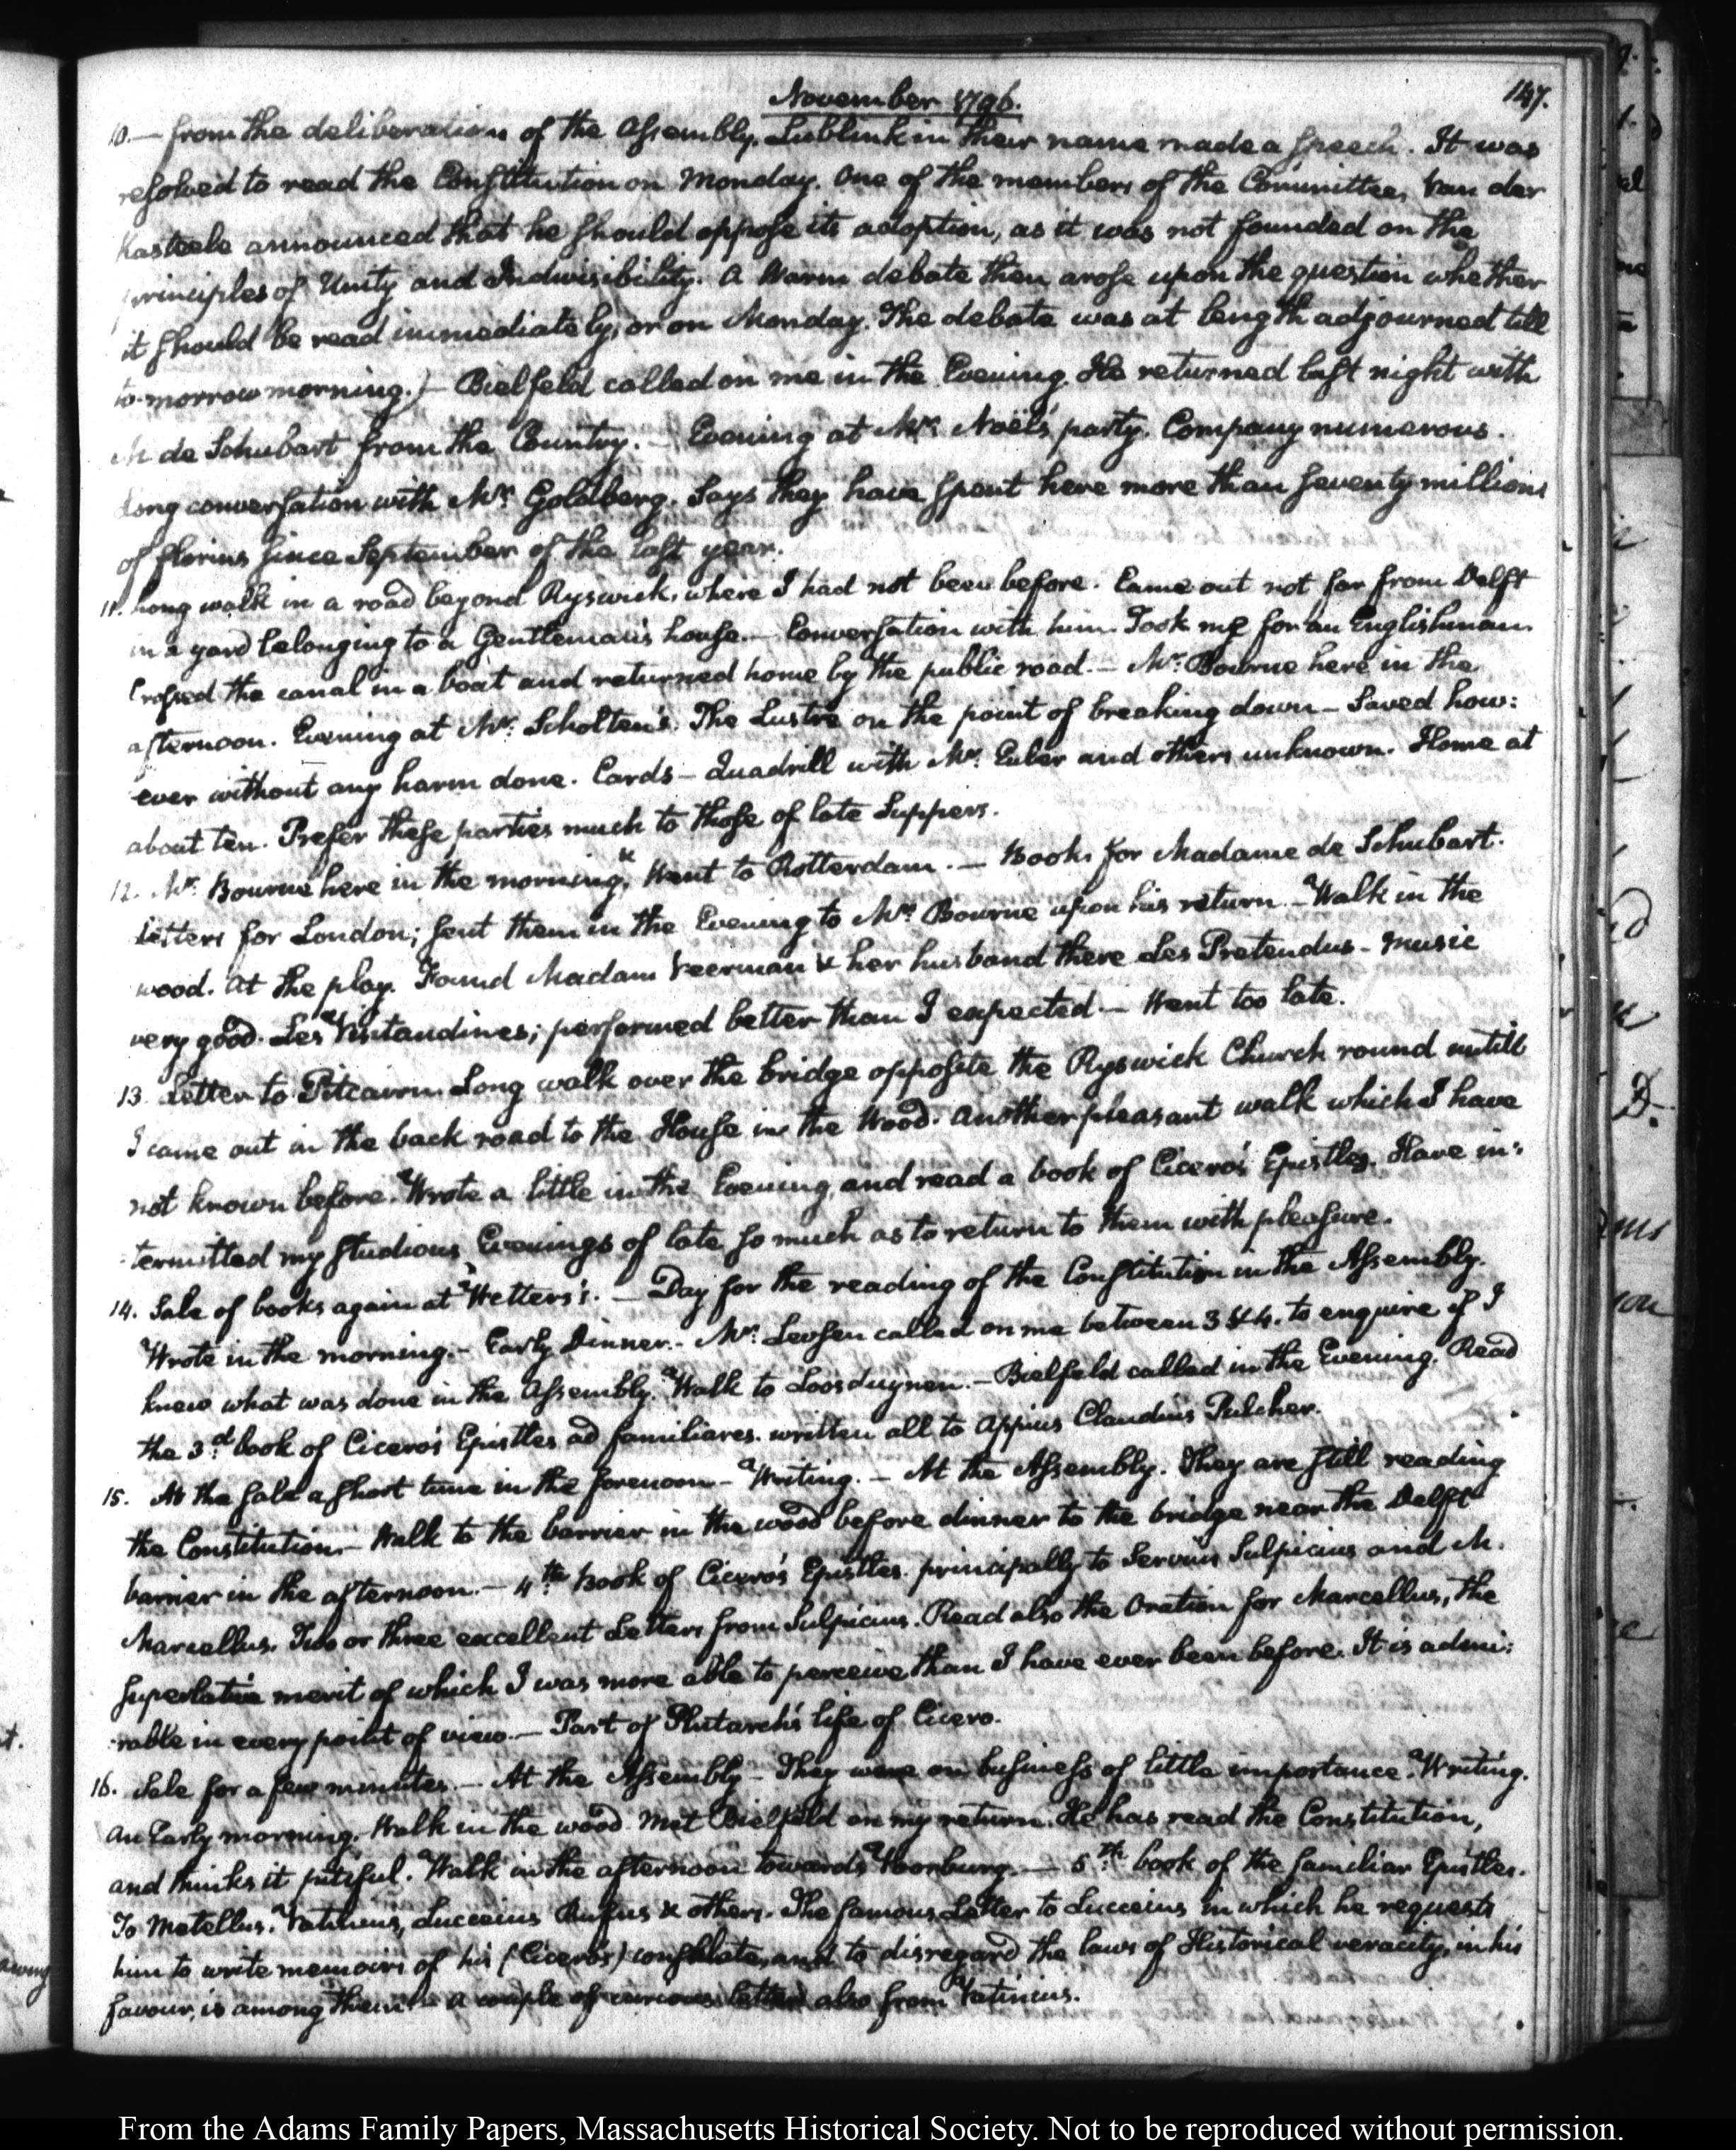 November 1796.
147.
10.— from the deliberations of the Assembly. Lublink in their name made a speech. It was
resolved to read the Constitution on Monday. One of the members of the Committee, Van der
Kasteele announced that he should oppose its adoption, as it was not founded on the
principles of Unity and Indivisibility. A Warm debate then arose upon the question whether
it should be read immediately, or on Monday. The debate was at length adjourned till
to-morrow morning.)— Bielfeld called on me in the Evening. He returned last night with
M de Schubart from the Country.— Evening at Mr: Noël's party. Company numerous.
Long conversation with Mr: Goldberg. Says they have spent here more than seventy millions
of florins since September of the last year.
11. Long walk in a road beyond Ryswick, where I had not been before. Came out not far from Delft
in a yard belonging to a Gentleman's house.— Conversation with him. Took me for an Englishman.
Crossed the canal in a boat and returned home by the public road.— Mr: Bourne here in the
afternoon. Evening at Mr: Scholten's. The Lustre on the point of breaking down— Saved how:
ever without any harm done. Cards— Quadrill with Mr: Euler and others unknown. Home at
about ten. Prefer these parties much to those of late Suppers.
12. Mr: Bourne here in the morning, & Went to Rotterdam.— Books for Madame de Schubart.
Letters for London; sent them in the Evening to Mr: Bourne upon his return.— Walk in the
wood. At the play. Found Madam Veerman & her husband there. Les Pretendus— Music
very good. Les Visitandines; performed better than I expected.— Went too late.
13. Letter to Pitcairn. Long walk over the bridge opposite the Ryswick Church round untill
I came out in the back road to the House in the Wood. Another pleasant walk which I have
not known before. Wrote a little in the Evening, and read a book of Cicero's Epistles. Have in:
:termitted my studious Evenings of late so much as to return to them with pleasure.
14. Sale of books again at Wetters's.— Day for the reading of the Constitution in the Assembly.
Wrote in the morning.— Early Dinner.— Mr: Levsen called on me between 3 & 4. to enquire if I
knew what was done in the Assembly. Walk to Loosduynen.— Bielfeld called in the Evening. Read
the 3d: book of Cicero's Epistles ad familiares. written all to Appius Claudius Pulcher.
15. At the sale a short time in the forenoon— Writing.— At the Assembly. They are still reading
the Constitution.— Walk to the barrier in the wood before dinner to the bridge near the Delft
barrier in the afternoon.— 4th: book of Cicero's Epistles. principally to Servius Sulpicius and M.
Marcellus. Two or three excellent Letters from Sulpicius. Read also the Oration for Marcellus, the
superlative merit of which I was more able to perceive than I have ever been before. It is admi:
:rable in every point of view.— Part of Plutarch's life of Cicero.
16. Sale for a few minutes.— At the Assembly— They were on business of little importance. Writing.
An Early morning. Walk in the wood. Met Bielfeld on my return. He has read the Constitution,
and thinks it pitiful. Walk in the afternoon towards Voorburg.— 5th: book of the familiar Epistles.
To Metellus, Vatinius, Lucceius Rufus & others. The famous Letter to Lucceius in which he requests
him to write memoirs of his (Cicero's) consulate, and to disregard the laws of Historical veracity, in his
favour, is among them.— a couple of curious letters also from Vatinius.
From the Adams Family Papers, Massachusetts Historical Society. Not to be reproduced without permission.